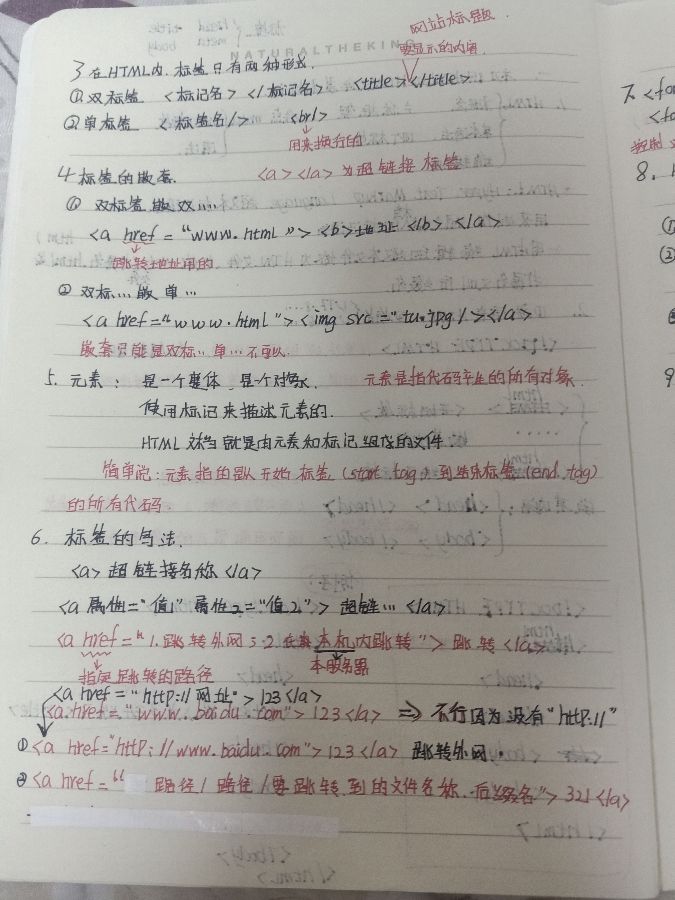 网站标题.
要显示的内容
NATURALTHEKING
3 在HTML内.标签只有两种形式.
①双标签 <标记名> </标记名> <title></title>
②单标签 <标签名/> <br/>
用来换行的
4 标签的嵌套. <a></a> 为超链接标签
① 双标签嵌双……
<a href="www.html"><b>地址</b></a>
跳转地址用的
② 双标…嵌单…
<a href="www.html"><img src="tu.jpg/></a>
嵌套只能是双标…单…不可以.
5. 元素: 是一个整体.是个对象. 元素是指代码产生的所有对象.
使用标记来描述元素的.
HTML 就是由元素和标记组成的文件.
简单说:元素指的是从开始标签(start tag)到结束标签(end tag)
的所有代码.
6. 标签的写法.
<a>超链接名称</a>
<a 属性="值1" 属性2="值2"> 超链…</a>
<a href="1.跳转外网 2 本机内跳转"> 跳转</a>
指定跳转的路径 本服务器
<a href="http://网址">123</a>
<a href="www.baidu.com">123</a> => 不行因为没有"http://"
①<a href="http://www.baidu.com">123</a> 跳转外网.
②<a href=" 路径/路径/要跳转到的文件名称.后缀名">321</a>
7. <
<
8.
①
②
9